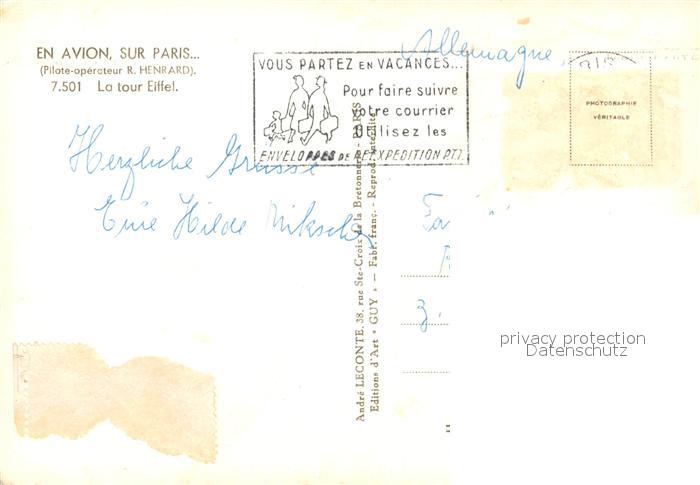 EN AVION, SUR PARIS...
(Pilote-opérateur R. HENRARD).
7.501 La tour Eiffel.
VOUS PARTEZ EN VACANCES...
Pour faire suivre
votre courrier
Utilisez les
ENVELOPPES DE RÉEXPEDITION P.T.T.
Allemagne
PHOTOGRAPHIE
VÉRITABLE
Herzliche Grüsse
Eure Hilde
André LECONTE, 38, rue Ste-Croix de la Bretonnerie - PARIS
Editions d'Art « GUY » — Fabr. franç. - Reprod. interdite
privacy protection
Datenschutz